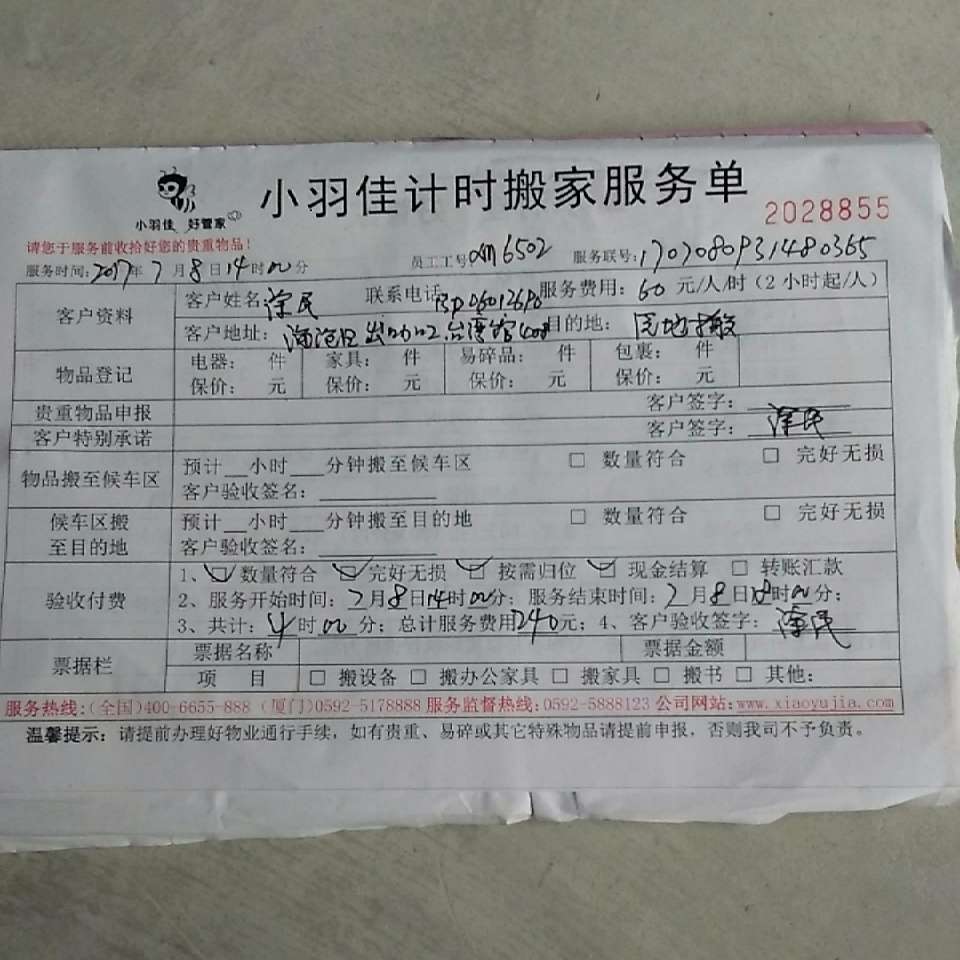 小羽佳 好管家
小羽佳计时搬家服务单
2028855
请您于服务前收拾好您的贵重物品!
服务时间: 2017年7月8日14时00分 员工工号: XM6502 服务联号: 170708093148 0365
客户资料
客户姓名 涂民 联系电话 服务费用: 60 元/人/时(2小时起/人)
客户地址: 目的地:
物品登记
电器: 件 家具: 件 易碎品: 件 包裹: 件
保价: 元 保价: 元 保价: 元 保价: 元
贵重物品申报 客户签字:
客户特别承诺 客户签字: 涂民
物品搬至候车区
预计__小时___分钟搬至候车区 □ 数量符合 □ 完好无损
客户验收签名:
候车区搬至目的地
预计__小时___分钟搬至目的地 □ 数量符合 □ 完好无损
客户验收签名:
验收付费
1、☑数量符合 ☑完好无损 ☑按需归位 ☑现金结算 □ 转账汇款
2、服务开始时间: 7月8日14时00分; 服务结束时间: 7月8日18时00分;
3、共计: 4时00分; 总计服务费用240元; 4、客户验收签字: 涂民
票据栏
票据名称 票据金额
项 目 □ 搬设备 □ 搬办公家具 □ 搬家具 □ 搬书 □ 其他:
服务热线:(全国)400-6655-888 (厦门)0592-5178888 服务监督热线:0592-5888123 公司网站:www.xiaoyujia.com
温馨提示: 请提前办理好物业通行手续,如有贵重、易碎或其它特殊物品请提前申报,否则我司不予负责。